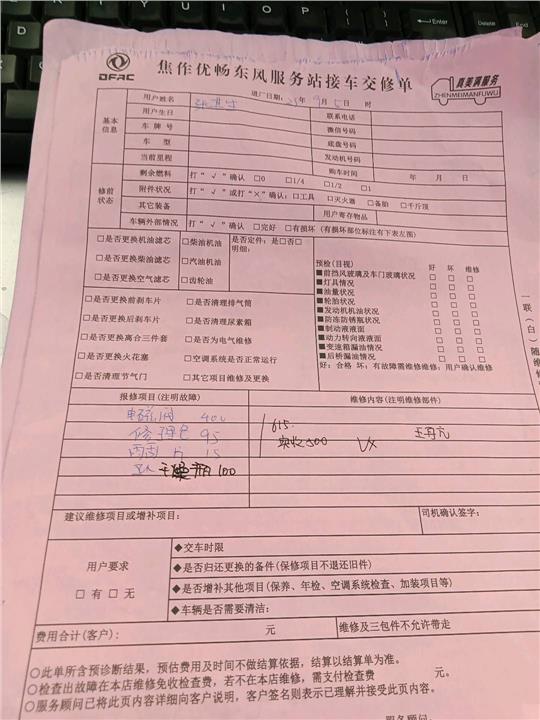 DFAC
焦作优畅东风服务站接车交修单
真美满服务
ZHENMEIMANFUWU
进厂日期: 年 9月 5日 时
基本信息
用户姓名
联系电话
用户生日
微信号码
车牌号
底盘号码
车型
发动机号码
当前里程
购车时间 年 月 日
修前状态
剩余燃料 打“√”确认 □0 □1/4 □1/2 □1
附件状况 打“√”或打“×”确认:□工具 □灭火器 □备胎 □千斤顶
其它装备
用户寄存物品
车辆外部情况 打“√”确认 □完好 □有损坏(有损坏部位标注有下表左图)
□是否更换机油滤芯 □柴油机油 是否定件:是□否□
□是否更换柴油滤芯 □汽油机油 明细:
□是否更换空气滤芯 □齿轮油
□是否更换前刹车片 □是否清理排气筒
□是否更换后刹车片 □是否清理尿素箱
□是否更换离合三件套 □是否为电气维修
□是否更换火花塞 □空调系统是否正常运行
□是否清理节气门 □其它项目维修及更换
预检(目视) 好 坏 维修
■前挡风玻璃及车门玻璃状况 □ □ □
■灯具情况 □ □ □
■油量状况 □ □ □
■轮胎状况 □ □ □
■发动机机油状况 □ □ □
■防冻防锈瓶状况 □ □ □
■制动液液面 □ □ □
■动力转向液液面 □ □ □
■变速箱漏油情况 □ □ □
■后桥漏油情况 □ □ □
好:合格 坏:有故障需维修维修:用户确认维修
一联(白)随维修
报修项目(注明故障)
维修内容(注明维修部件)
400
修理包 95
615.
实收500
片 15
干燥瓶 100
建议维修项目或增补项目:
司机确认签字:
用户要求
□有 □无
◆交车时限
◆是否归还更换的备件(保修项目不退还旧件)
◆是否增补其他项目(保养、年检、空调系统检查、加装项目等)
◆车辆是否需要清洁:
费用合计(客户): 元
维修及三包件不允许带走
○此单所含预诊断结果,预估费用及时间不做结算依据,结算以结算单为准。
○检查出故障在本店维修免收检查费,若不在本店维修,需支付检查费 元。
○服务顾问已将此页内容详细向客户说明,客户签名则表示已理解并接受此页内容。
服务顾问签名: